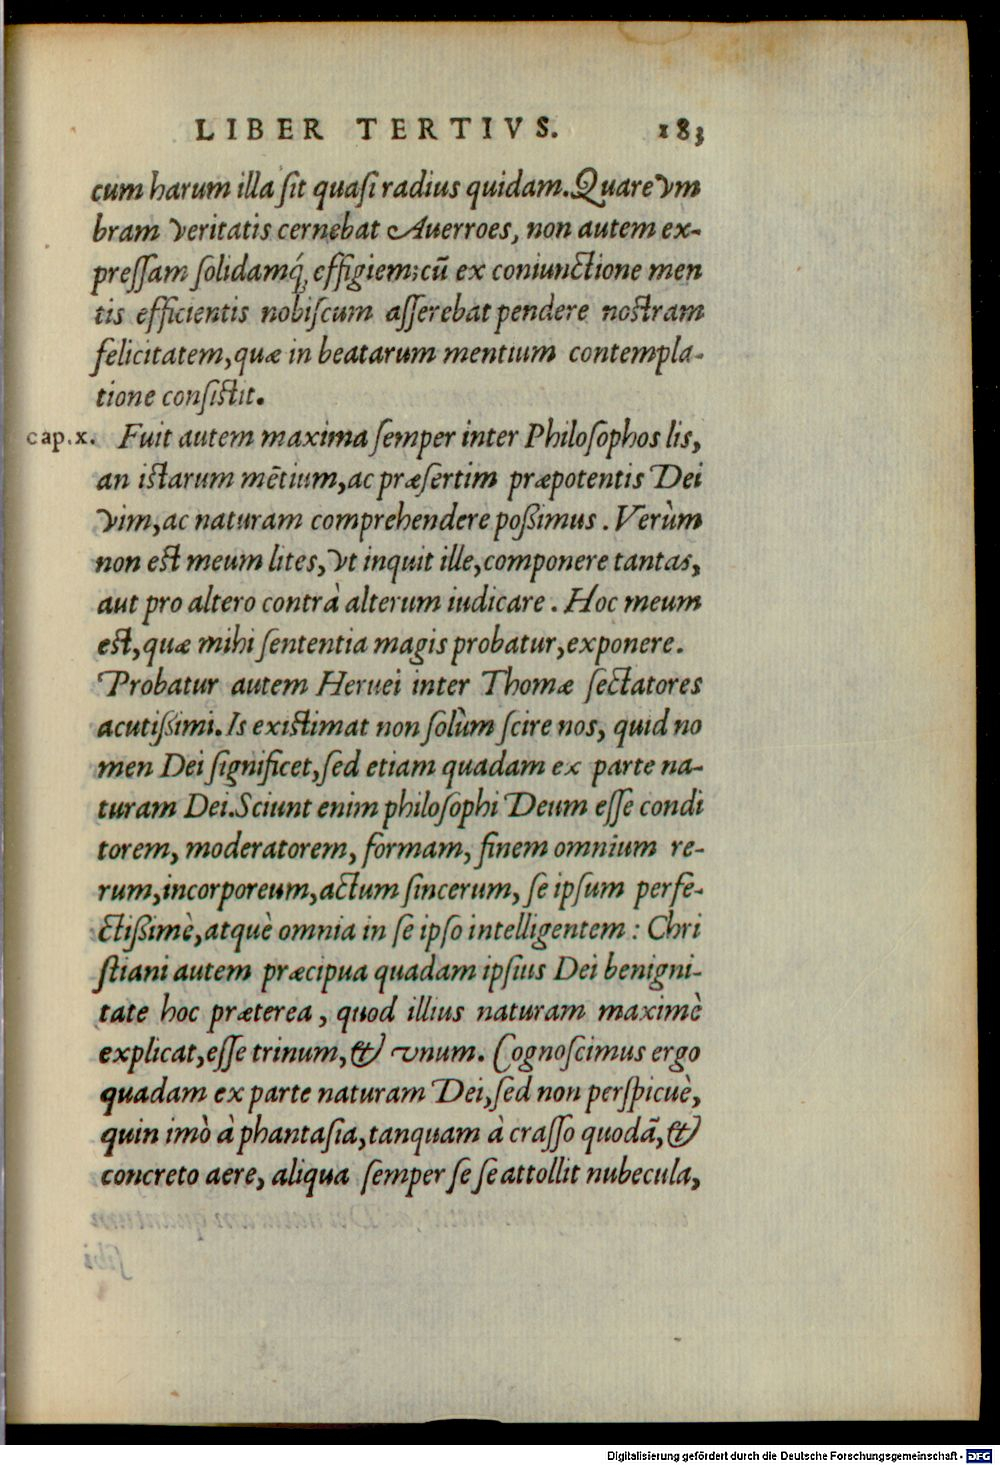 LIBER TERTIVS. 183
cum harum illa sit quasi radius quidam. Quare vm
bram veritatis cernebat Auerroes, non autem ex-
pressam solidamq́, effigiem; cū ex coniunctione men
tis efficientis nobiscum asserebat pendere nostram
felicitatem, quæ in beatarum mentium contempla-
tione consistit.
cap. x. Fuit autem maxima semper inter Philosophos lis,
an istarum mētium, ac præsertim præpotentis Dei
vim, ac naturam comprehendere poßimus. Verùm
non est meum lites, vt inquit ille, componere tantas,
aut pro altero contrà alterum iudicare. Hoc meum
est, quæ mihi sententia magis probatur, exponere.
Probatur autem Heruei inter Thomæ sectatores
acutißimi. Is existimat non solùm scire nos, quid no
men Dei significet, sed etiam quadam ex parte na-
turam Dei. Sciunt enim philosophi Deum esse condi
torem, moderatorem, formam, finem omnium re-
rum, incorporeum, actum sincerum, se ipsum perfe-
ctißimè, atquè omnia in se ipso intelligentem: Chri
stiani autem præcipua quadam ipsius Dei benigni-
tate hoc præterea, quod illius naturam maximè
explicat, esse trinum, & vnum. Cognoscimus ergo
quadam ex parte naturam Dei, sed non perspicuè,
quin imò à phantasia, tanquam à crasso quodā, &
concreto aere, aliqua semper se se attollit nubecula,
Digitalisierung gefördert durch die Deutsche Forschungsgemeinschaft - DFG